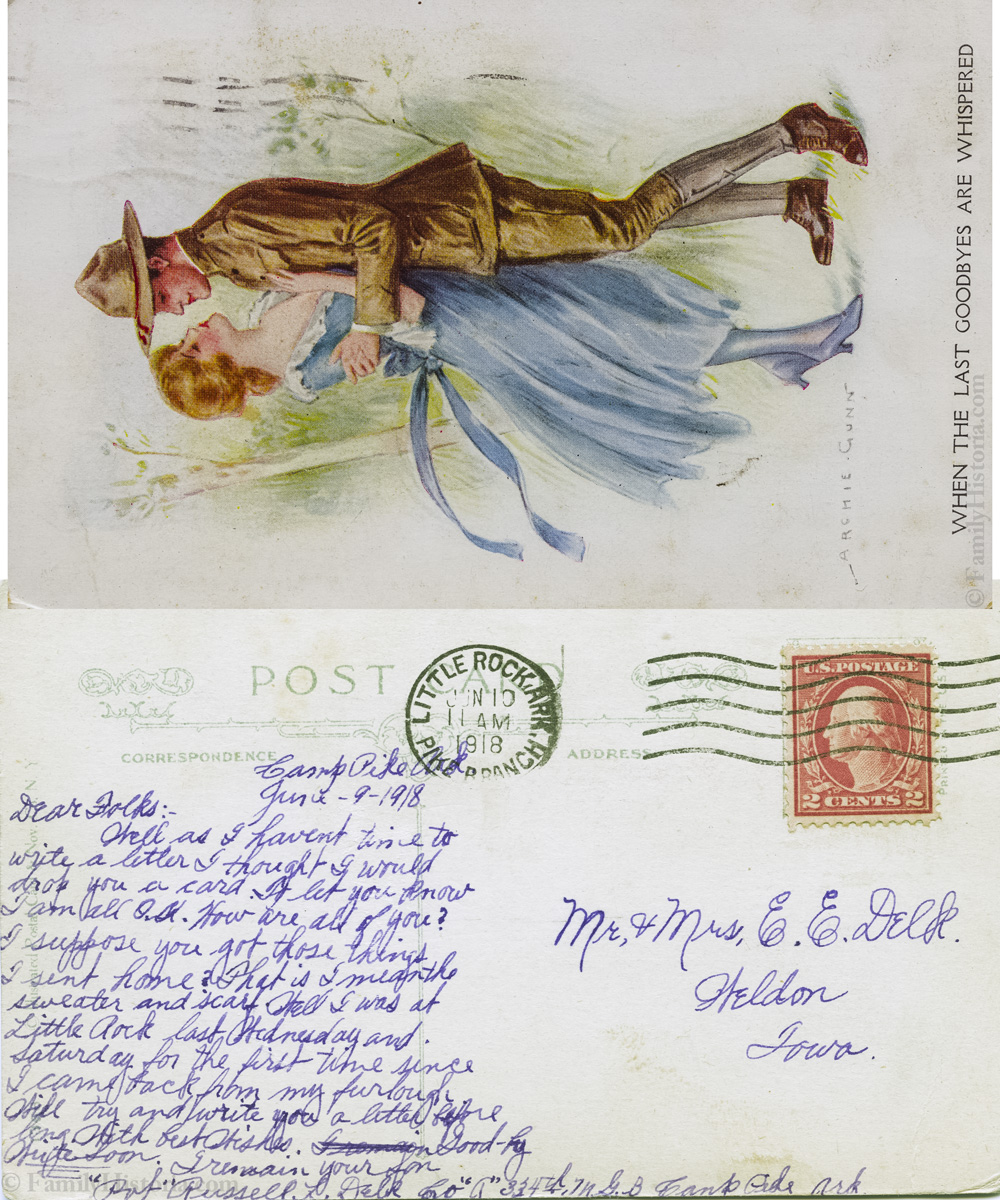 WHEN THE LAST GOODBYES ARE WHISPERED
ARCHIE GUNN
© FamilyHistoria.com
POST CARD
CORRESPONDENCE
ADDRESS
LITTLE ROCK, ARK.
JUN 10
11 AM
1918
PIKE BRANCH
U.S. POSTAGE
2 CENTS 2
Camp Pike Ark
June - 9 - 1918
Dear Folks:-
Well as I havent time to
write a letter I thought I would
drop you a card. & let you know
I am all O.K. How are all of you?
I suppose you got those things
I sent home? That is I mean the
sweater and scarf Well I was at
Little Rock last Wednesday and
Saturday for the first time since
I came back from my furlough
Will try and write you a letter before
long With best Wishes. Good-by
Write Soon. I remain your Son
"Pvt" Russell L. Delk Co "A" 334th M G. B Camp Pike Ark
Mr, & Mrs, E. E. Delk.
Weldon
Iowa.
© FamilyHistoria.com